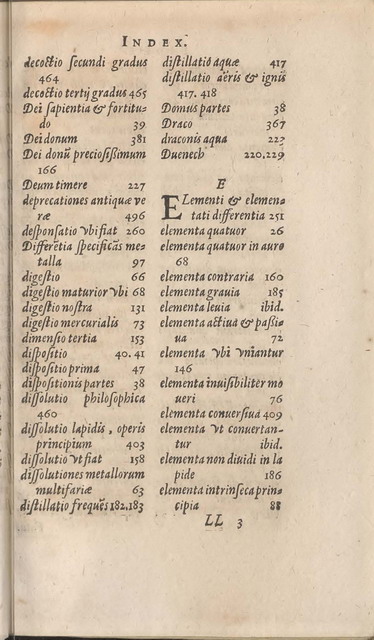 INDEX.
decoctio secundi gradus
464
decoctio tertij gradus 465
Dei sapientia & fortitu=
do 39
Dei donum 381
Dei donũ preciosißimum
166
Deum timere 227
deprecationes antiquæ ve
ræ 496
desponsatio vbi fiat 260
Differẽtia specificãs me=
talla 97
digestio 66
digestio maturior vbi 68
digestio nostra 131
digestio mercurialis 73
dimensio tertia 153
dispositio 40.41
dispositio prima 47
dispositionis partes 38
dissolutio philosophica
460
dissolutio lapidis, operis
principium 403
dissolutio vt fiat 158
dissolutiones metallorum
multifariæ 63
distillatio frequẽs 182.183
distillatio aquæ 417
distillatio aëris & ignis
417. 418
Domus partes 38
Draco 367
draconis aqua
Duenech 220.229
E
ELementi & elemen=
tati differentia 251
elementa quatuor 26
elementa quatuor in auro
68
elementa contraria 160
elementa grauia 185
elementa leuia ibid.
elementa actiua & paßi=
ua 72
elementa vbi vniantur
146
elementa inuisibiliter mo
ueri 76
elementa conuersiua 409
elementa vt conuertan=
tur ibid.
elementa non diuidi in la
pide 186
elementa intrinseca prin=
cipia 88
LL 3